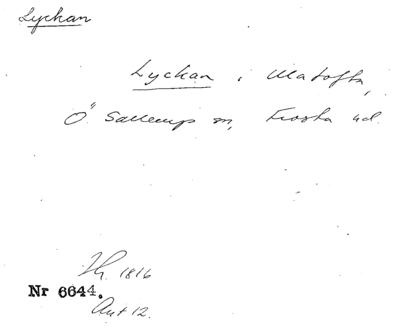 Lyckan
Lyckan i Matofta,
Ö Sallerup sn, Frosta hd.
Th. 1816
Nr 6644.
Ant 12.